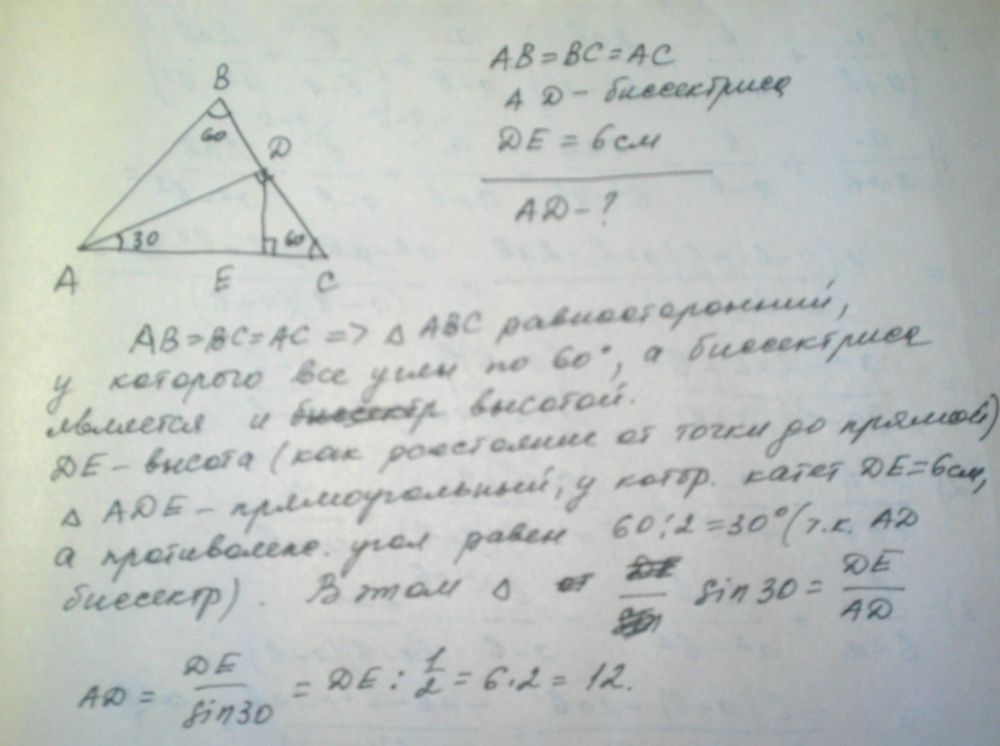 B
60
D
30
60
A
E
C
AB=BC=AC
AD - биссектриса
DE = 6см
AD - ?
AB=BC=AC => △ ABC равносторонний,
у которого все углы по 60°, а биссектриса
является и биссектр высотой.
DE - высота (как расстояние от точки до прямой)
△ ADE - прямоугольный, у котор. катет DE=6см,
а противолеж. угол равен 60:2=30° (т.к. AD
биссектр). В этом △ sin30 = DE/AD
AD = DE/sin30 = DE : 1/2 = 6·2 = 12.